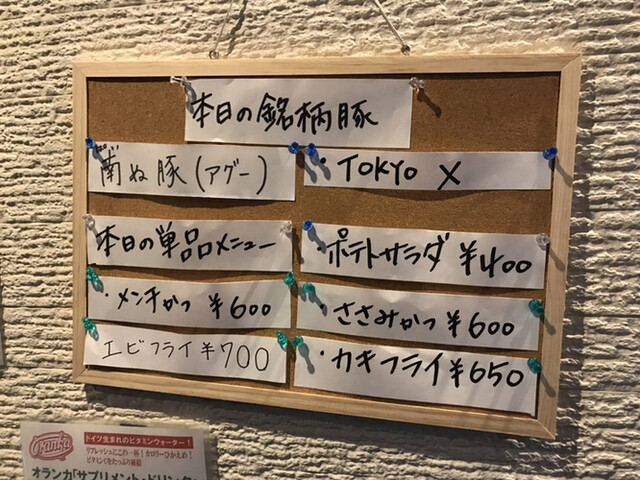 本日の銘柄豚
南ぬ豚(アグー)
・TOKYO X
本日の単品メニュー
・ポテトサラダ ¥400
・メンチかつ ¥600
・ささみかつ ¥600
エビフライ ¥700
・カキフライ ¥650
ドイツ生まれのビタミンウォーター!
リフレッシュにこの一杯!カロリーひかえめ!
ビタミンCをたっぷり補給
オランカ「サプリメント・ドリンク」